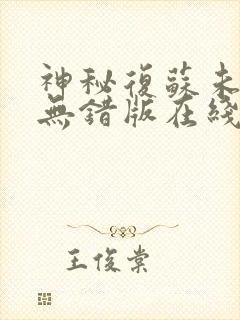 神秘復蘇未
無錯版在綫
王俊棠